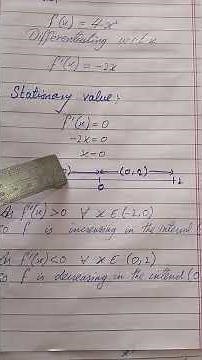 f(x) = 4-x²
Differentiating w.r.t x
f'(x) = -2x
Stationary value:
f'(x) = 0
-2x = 0
x = 0
(0, 2)
0 +2
As f'(x) > 0 ∀ x ∈ (-2, 0)
So f is increasing in the interval (
As f'(x) < 0 ∀ x ∈ (0, 2)
So f is decreasing in the interval (0